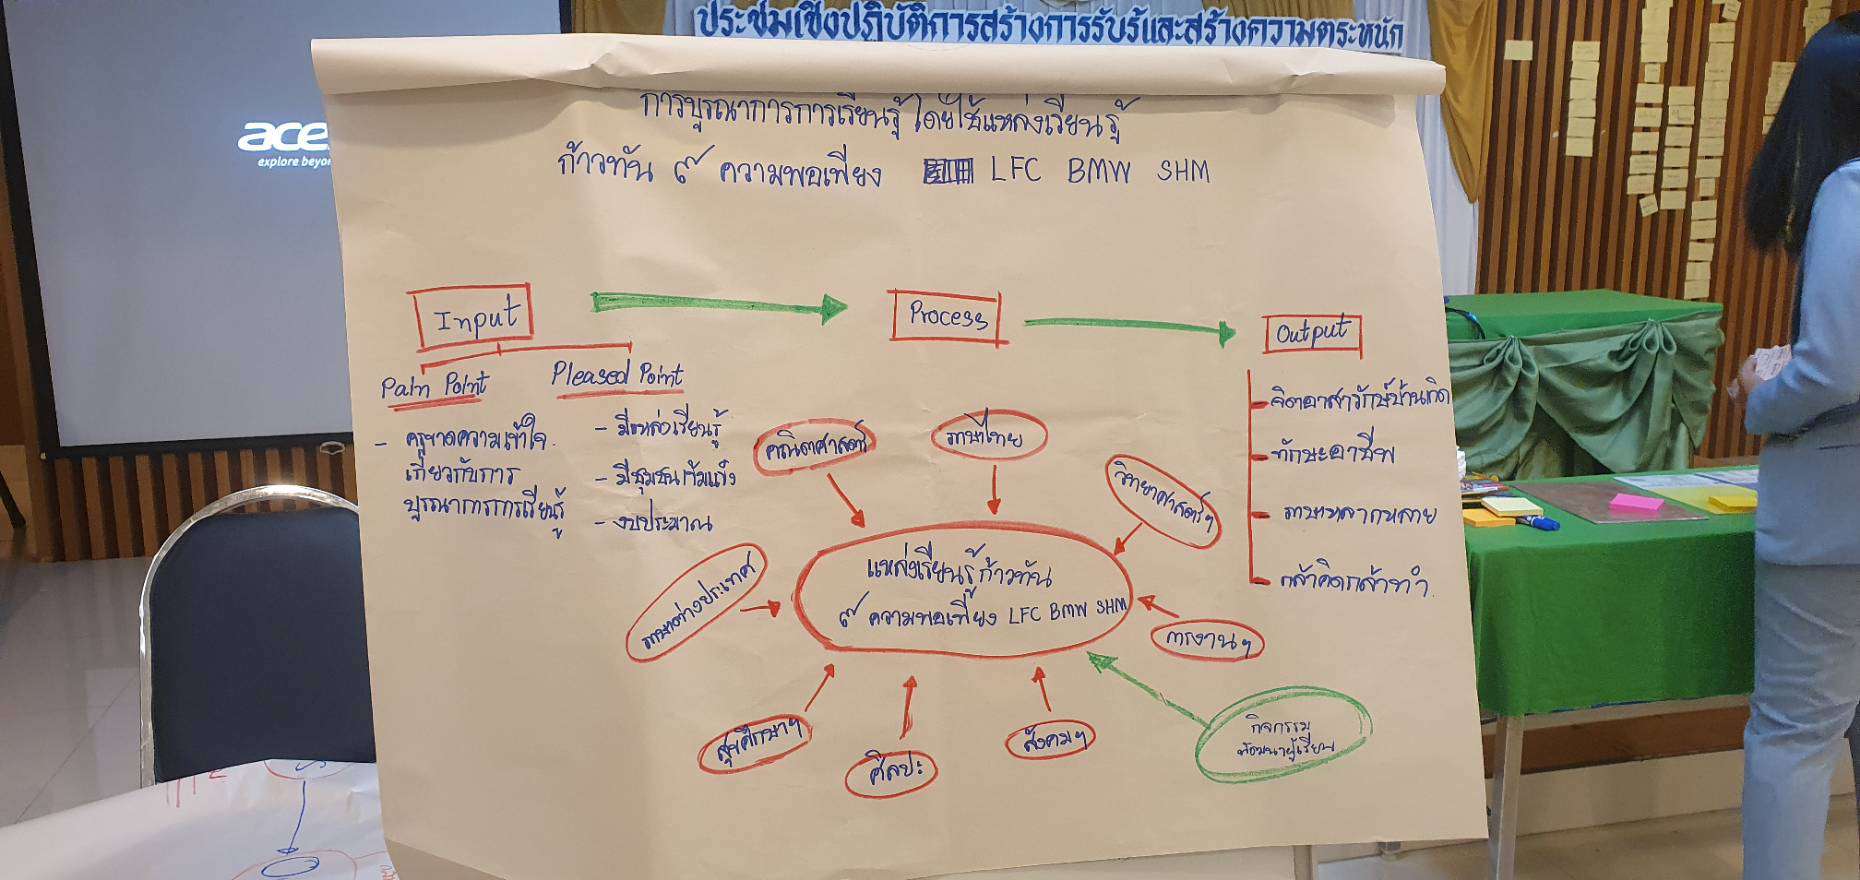 ประชุมเชิงปฏิบัติการสร้างการรับรู้และสร้างความตระหนัก
acer
explore beyon
การบูรณาการการเรียนรู้ โดยใช้แหล่งเรียนรู้
ก้าวทัน ๙ ความพอเพียง LFC BMW SHM
Input
Process
Output
Pain Point
Pleased Point
- ครูขาดความเข้าใจ
เกี่ยวกับการ
บูรณาการการเรียนรู้
- มีแหล่งเรียนรู้
- มีชุมชนเข้มแข็ง
- งบประมาณ
- จิตอาสารักษ์บ้านเกิด
- ทักษะอาชีพ
- ภาษาหลากหลาย
- กล้าคิดกล้าทำ
คณิตศาสตร์
ภาษาไทย
วิทยาศาสตร์ฯ
ภาษาต่างประเทศ
แหล่งเรียนรู้ก้าวทัน
๙ ความพอเพียง LFC BMW SHM
การงานฯ
สุขศึกษาฯ
ศิลปะ
สังคมฯ
กิจกรรม
พัฒนาผู้เรียน